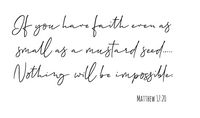 If you have faith even as
small as a mustard seed.....
Nothing will be impossible.
MATTHEW 17:20